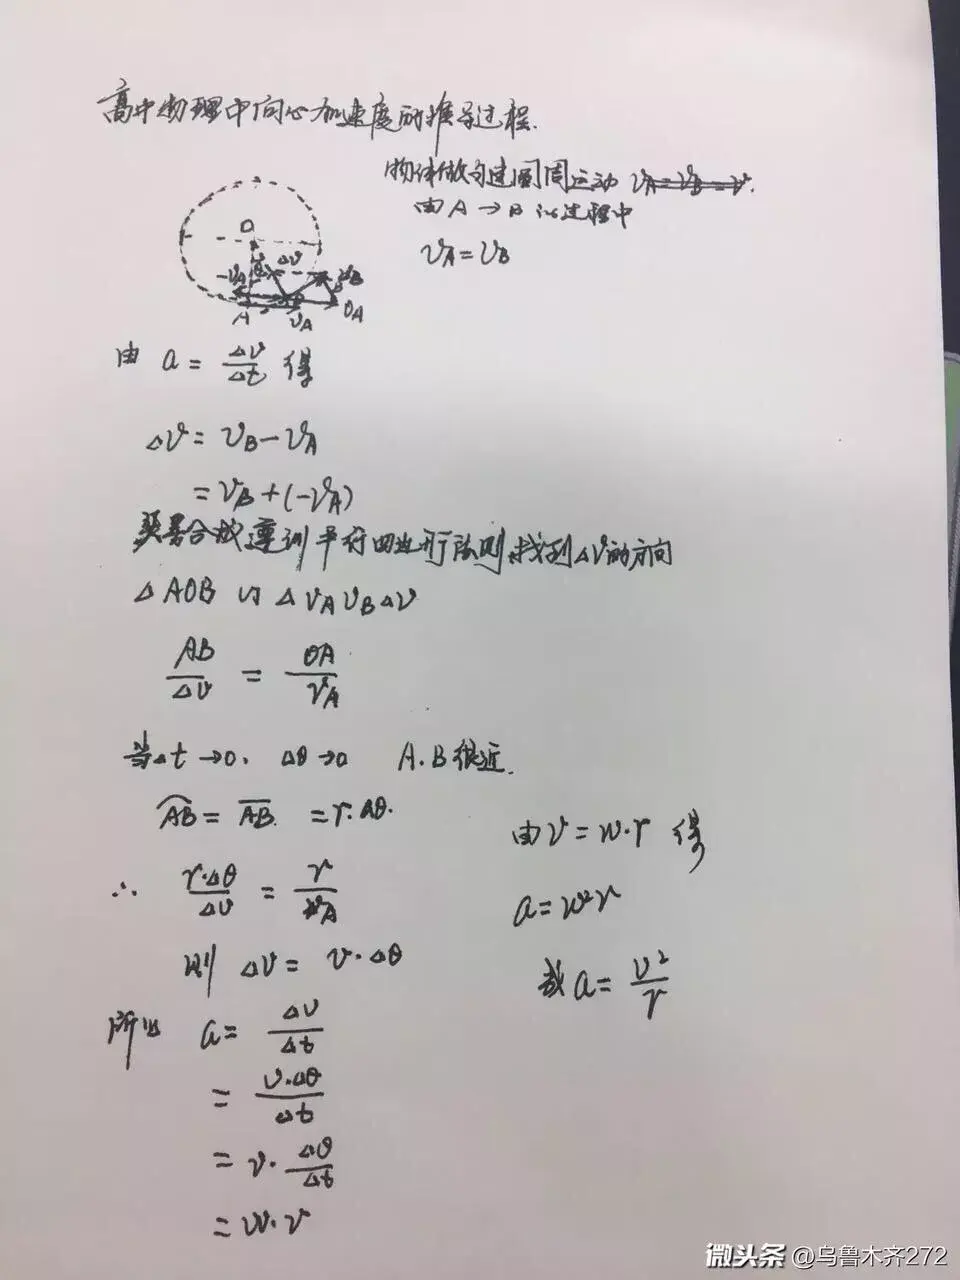 高中物理中向心加速度的推导过程.
物体做匀速圆周运动 vA=vB=v.
由A→B的过程中
vA=vB
O
θ Δv
-vA vB
A vA vA
由 a = Δv/Δt 得
Δv = vB-vA
= vB+(-vA)
矢量合成遵训平行四边形法则.找到Δv的方向
ΔAOB 以 Δ vA vB Δv
AB/Δv = OA/vA
当Δt→0. Δθ→0 A.B很近.
⌒AB = ‾AB. = r·Δθ.
∴ r·Δθ/Δv = r/vA
则 Δv = v·Δθ
所以 a = Δv/Δt
= v·Δθ/Δt
= v·Δθ/Δt
= w·v
由v = w·r 得
a = w²r
或a = v²/r
微头条 @乌鲁木齐272